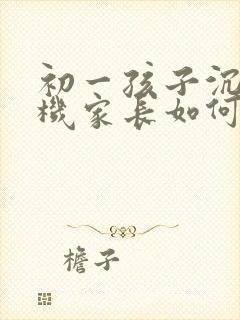 初一孩子沉
機家长如何
檐子